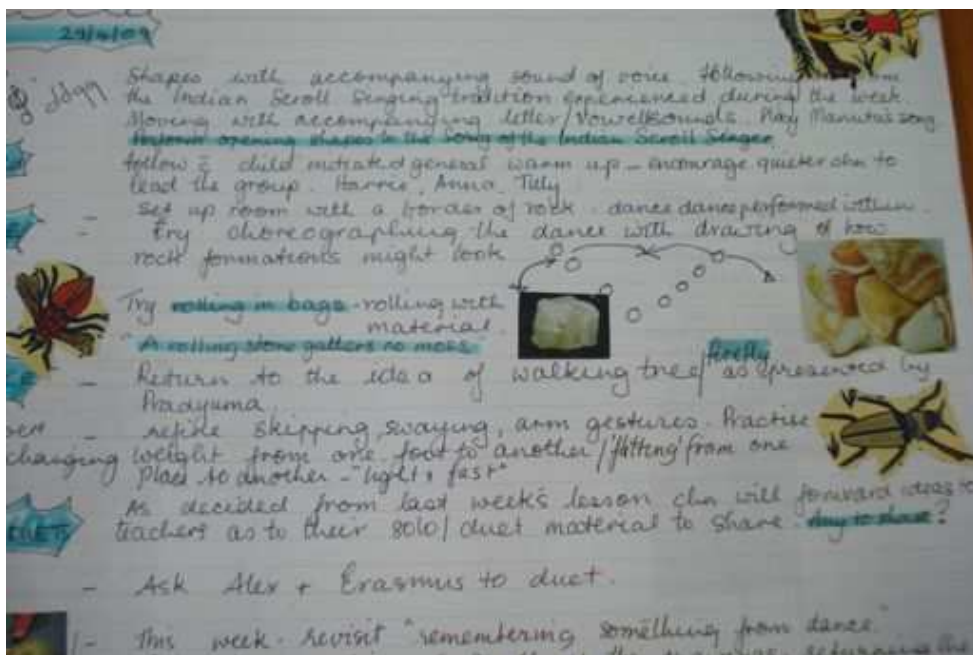 29/4/09
Shapes with accompanying sound of voice following
the Indian Scroll Singing tradition experienced during the week.
Moving with accompanying letter/vowel sounds. Play Manuta's song.
Perform opening shapes to the song of the Indian Scroll Singer
follow c child initiated general warm up - encourage quieter chn to
lead the group. Harrie, Anna, Tilly
- Set up room with a border of rock - dance dance performed within.
Try choreographing the dance with drawing of how
rock formations might look
Try rolling in bags - rolling with
material.
"A rolling stone gathers no moss"
- Return to the idea of walking tree/firefly as presented by
Pradyuma
- refine skipping, swaying, arm gestures. Practise
changing weight from one foot to another/'flitting' from one
place to another - "light + fast"
As decided from last week's lesson chn will forward ideas to
teachers as to their solo/duet material to share. day to share?
- Ask Alex + Erasmus to duet.
- This week - revisit "remembering something from dance"
returning the